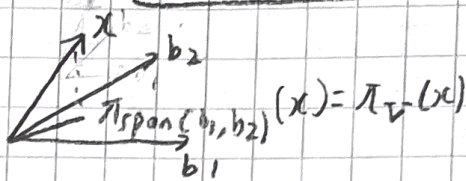 x
b₂
π_span(b₁,b₂)(x) = π_U(x)
b₁